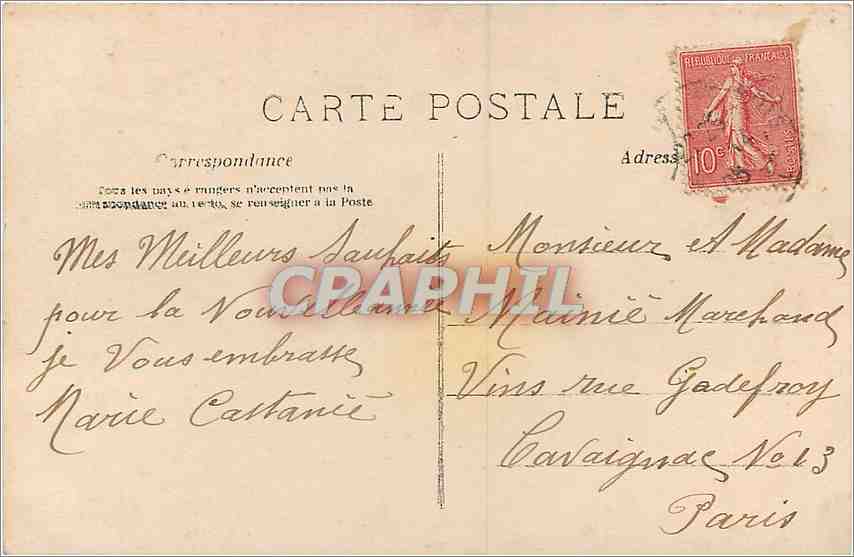 CARTE POSTALE
Correspondance
Tous les pays étrangers n'acceptent pas la
correspondance au recto, se renseigner à la Poste
Adresse
REPUBLIQUE FRANÇAISE
10c
POSTES
CPAPHIL
Mes Meilleurs Sauhaits
pour la Nouvelle année
je Vous embrasse
Marie Castanié
Monsieur et Madame
Mainié Marchand
Vins rue Gadefroy
Cavaignac No 13
Paris